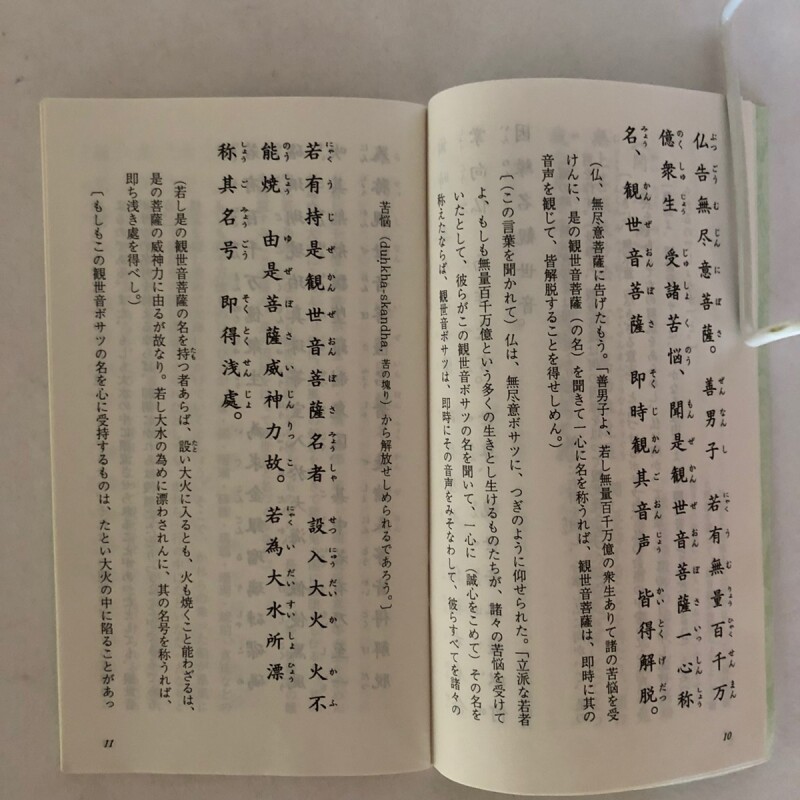 仏告無尽意菩薩。善男子 若有無量百千万
億衆生 受諸苦悩、聞是観世音菩薩一心称
名、観世音菩薩 即時観其音声 皆得解脱。
（仏、無尽意菩薩に告げたもう。「善男子よ、若し無量百千万億の衆生ありて諸の苦悩を受
けんに、是の観世音菩薩（の名）を聞きて一心に名を称うれば、観世音菩薩は、即時に其の
音声を観じて、皆解脱することを得せしめん。）
〔（この言葉を聞かれて）仏は、無尽意ボサツに、つぎのように仰せられた。「立派な若者
よ、もしも無量百千万億という多くの生きとし生けるものたちが、諸々の苦悩を受けて
いたとして、彼らがこの観世音ボサツの名を聞いて、一心に（誠心をこめて）その名を
称えたならば、観世音ボサツは、即時にその音声をみそなわして、彼らすべてを諸々の
10
苦悩（duḥkha-skandha, 苦の塊り）から解放せしめられるであろう。〕
若有持是観世音菩薩名者 設入大火 火不
能焼 由是菩薩威神力故。若為大水所漂
称其名号 即得浅處。
（若し是の観世音菩薩の名を持つ者あらば、設い大火に入るとも、火も焼くこと能わざるは、
是の菩薩の威神力に由るが故なり。若し大水の為めに漂わされんに、其の名号を称うれば、
即ち浅き處を得べし。）
〔もしもこの観世音ボサツの名を心に受持するものは、たとい大火の中に陥ることがあっ
11